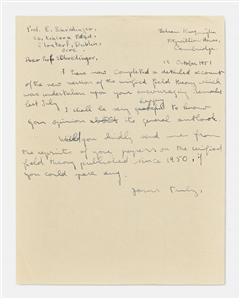 Prof. E. Schrodinger,
Kincora Road,
Clontarf, Dublin,
Eire
Cambridge.
15 October 1951
Dear Prof. Schrodinger,
I have now completed a detailed account
of the new version of the unified field theory which
was undertaken upon your encouraging remarks
last July. I shall be very grateful to know
your opinion about its general outlook.
Would you kindly send me from
the reprints of your papers on the unified
field theory published since 1950, if
you could spare any.
Yours truly,